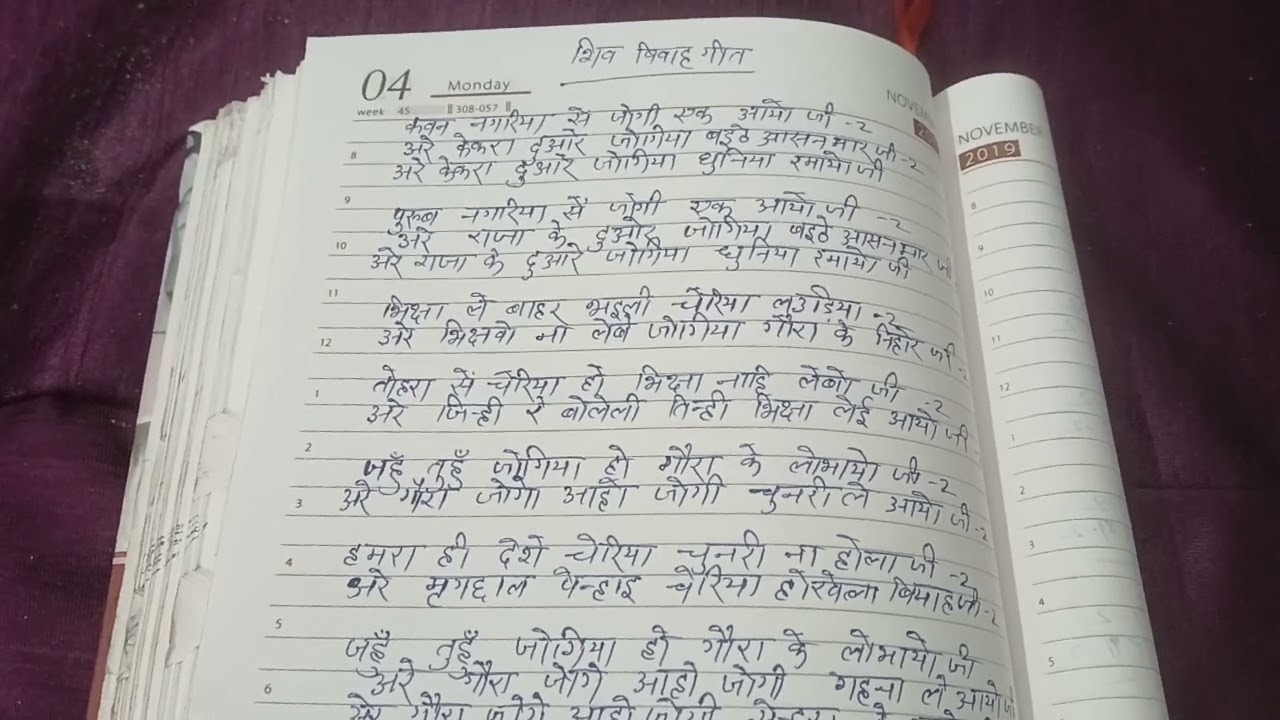 शिव विवाह गीत
04 Monday
week 45 308-057
NOVEM
NOVEMBER
2019
कवन नगरिया से जोगी एक आयो जी -2
अरे केकरा दुआरे जोगिया बइठे आसन मार जी -2
अरे केकरा दुआरे जोगिया धुनिया रमायो जी
पुरुब नगरिया से जोगी एक आयो जी -2
अरे राजा के दुआरे जोगिया बइठे आसन मार जी
अरे राजा के दुआरे जोगिया धुनिया रमायो जी
भिक्षा ले बाहर भइली चेरिया लउड़िया -2
अरे भिक्षवो ना लेबे जोगिया गौरा के निहोर जी -2
तोहरा से चेरिया हो भिक्षा नाहि लेबो जी -2
अरे जिन्ही रे बोलेली तिन्ही भिक्षा लेई आयो जी
जहुँ तुहुँ जोगिया हो गौरा के लोभायो जी -2
अरे गौरा जोगे आहो जोगी चुनरी ले आयो जी -2
हमरा ही देशे चेरिया चुनरी ना होला जी -2
अरे मृगछाल पेन्हाइ चेरिया होखेला बियाह जी -2
जहुँ तुहुँ जोगिया हो गौरा के लोभायो जी
अरे गौरा जोगे आहो जोगी गहना ले आयो जी
अरे गौरा जोगे आहो जोगी
8
9
10
11
12
1
2
3
4
5
6
8
9
10
11
12
1
2
3
4
5
6